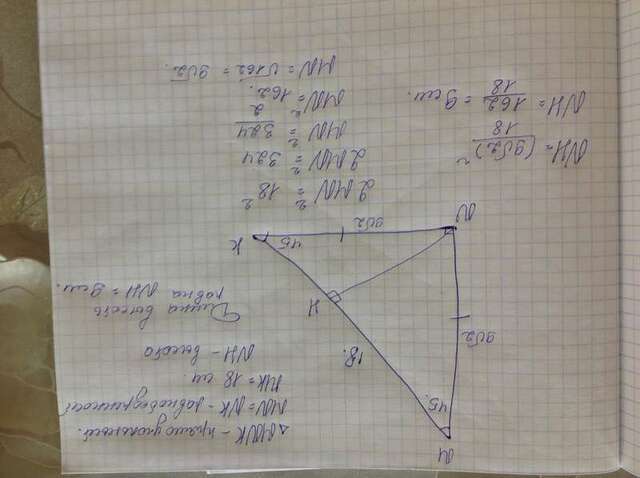 △MNK - прямоугольный.
MN = NK - равнобедренной
MK = 18 см.
NH - высота
Длина высоты
равна NH = 9 см.
M
45.
9√2
18.
H
N
9√2
45
K
2MN² = 18²
2MN² = 324
MN² = 324/2
MN² = 162.
MN = √162 = 9√2.
NH = (9√2)²/18
NH = 162/18 = 9 см.